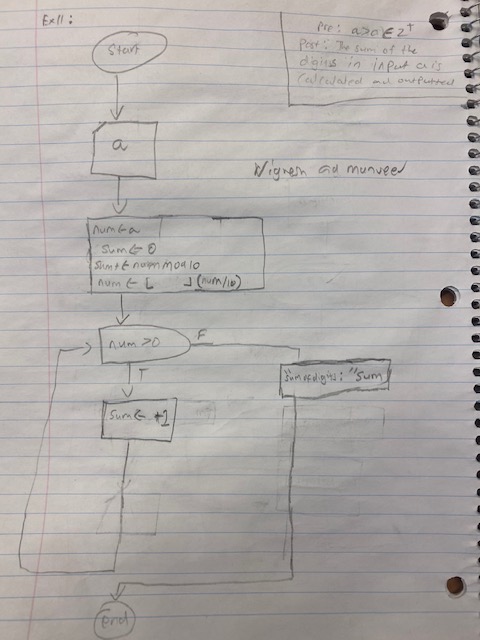 Ex11:
Pre: a>0 ∈ Z⁺
Post: The sum of the
digits in input a is
calculated and outputted
Start
a
Vignesh and
num ← a
sum ← 0
sum+ ← num mod 10
num ← ⌊ ⌋ (num/10)
num > 0
F
T
"sum of digits: " sum
sum ← +1
end